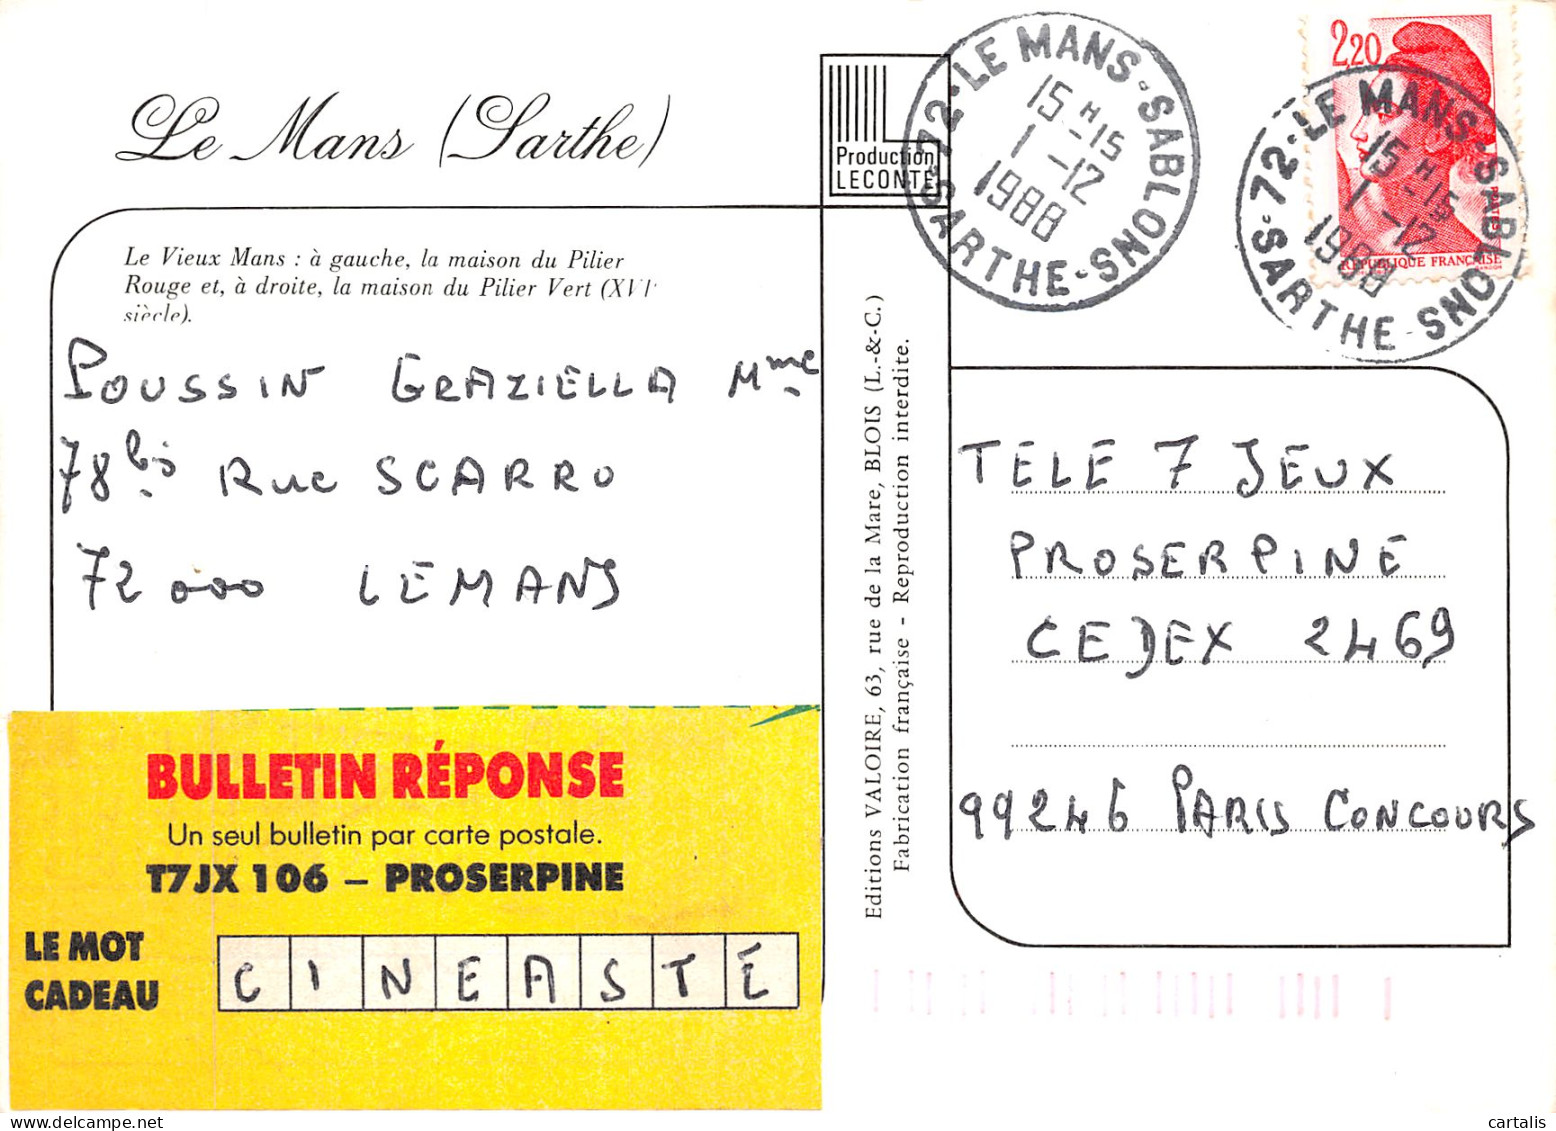 Le Mans (Sarthe)
Production
LECONTE
72 - LE MANS - SABLONS - SARTHE
15 H 15
1 - 12
1988
2,20
72 - LE MANS - SABLONS - SARTHE
15 H 15
1 - 12
1988
POSTES
RÉPUBLIQUE FRANÇAISE
Le Vieux Mans : à gauche, la maison du Pilier
Rouge et, à droite, la maison du Pilier Vert (XVIe
siècle).
POUSSIN GRAZIELLA Mme
78 bis Rue SCARRO
72 000 LE MANS
Editions VALOIRE, 63, rue de la Mare, BLOIS (L.-&-C.)
Fabrication française - Reproduction interdite.
TELE 7 JEUX
PROSERPINE
CEDEX 2469
99246 PARIS CONCOURS
BULLETIN RÉPONSE
Un seul bulletin par carte postale.
T7JX 106 – PROSERPINE
LE MOT
CADEAU
CINEASTE
cartalis